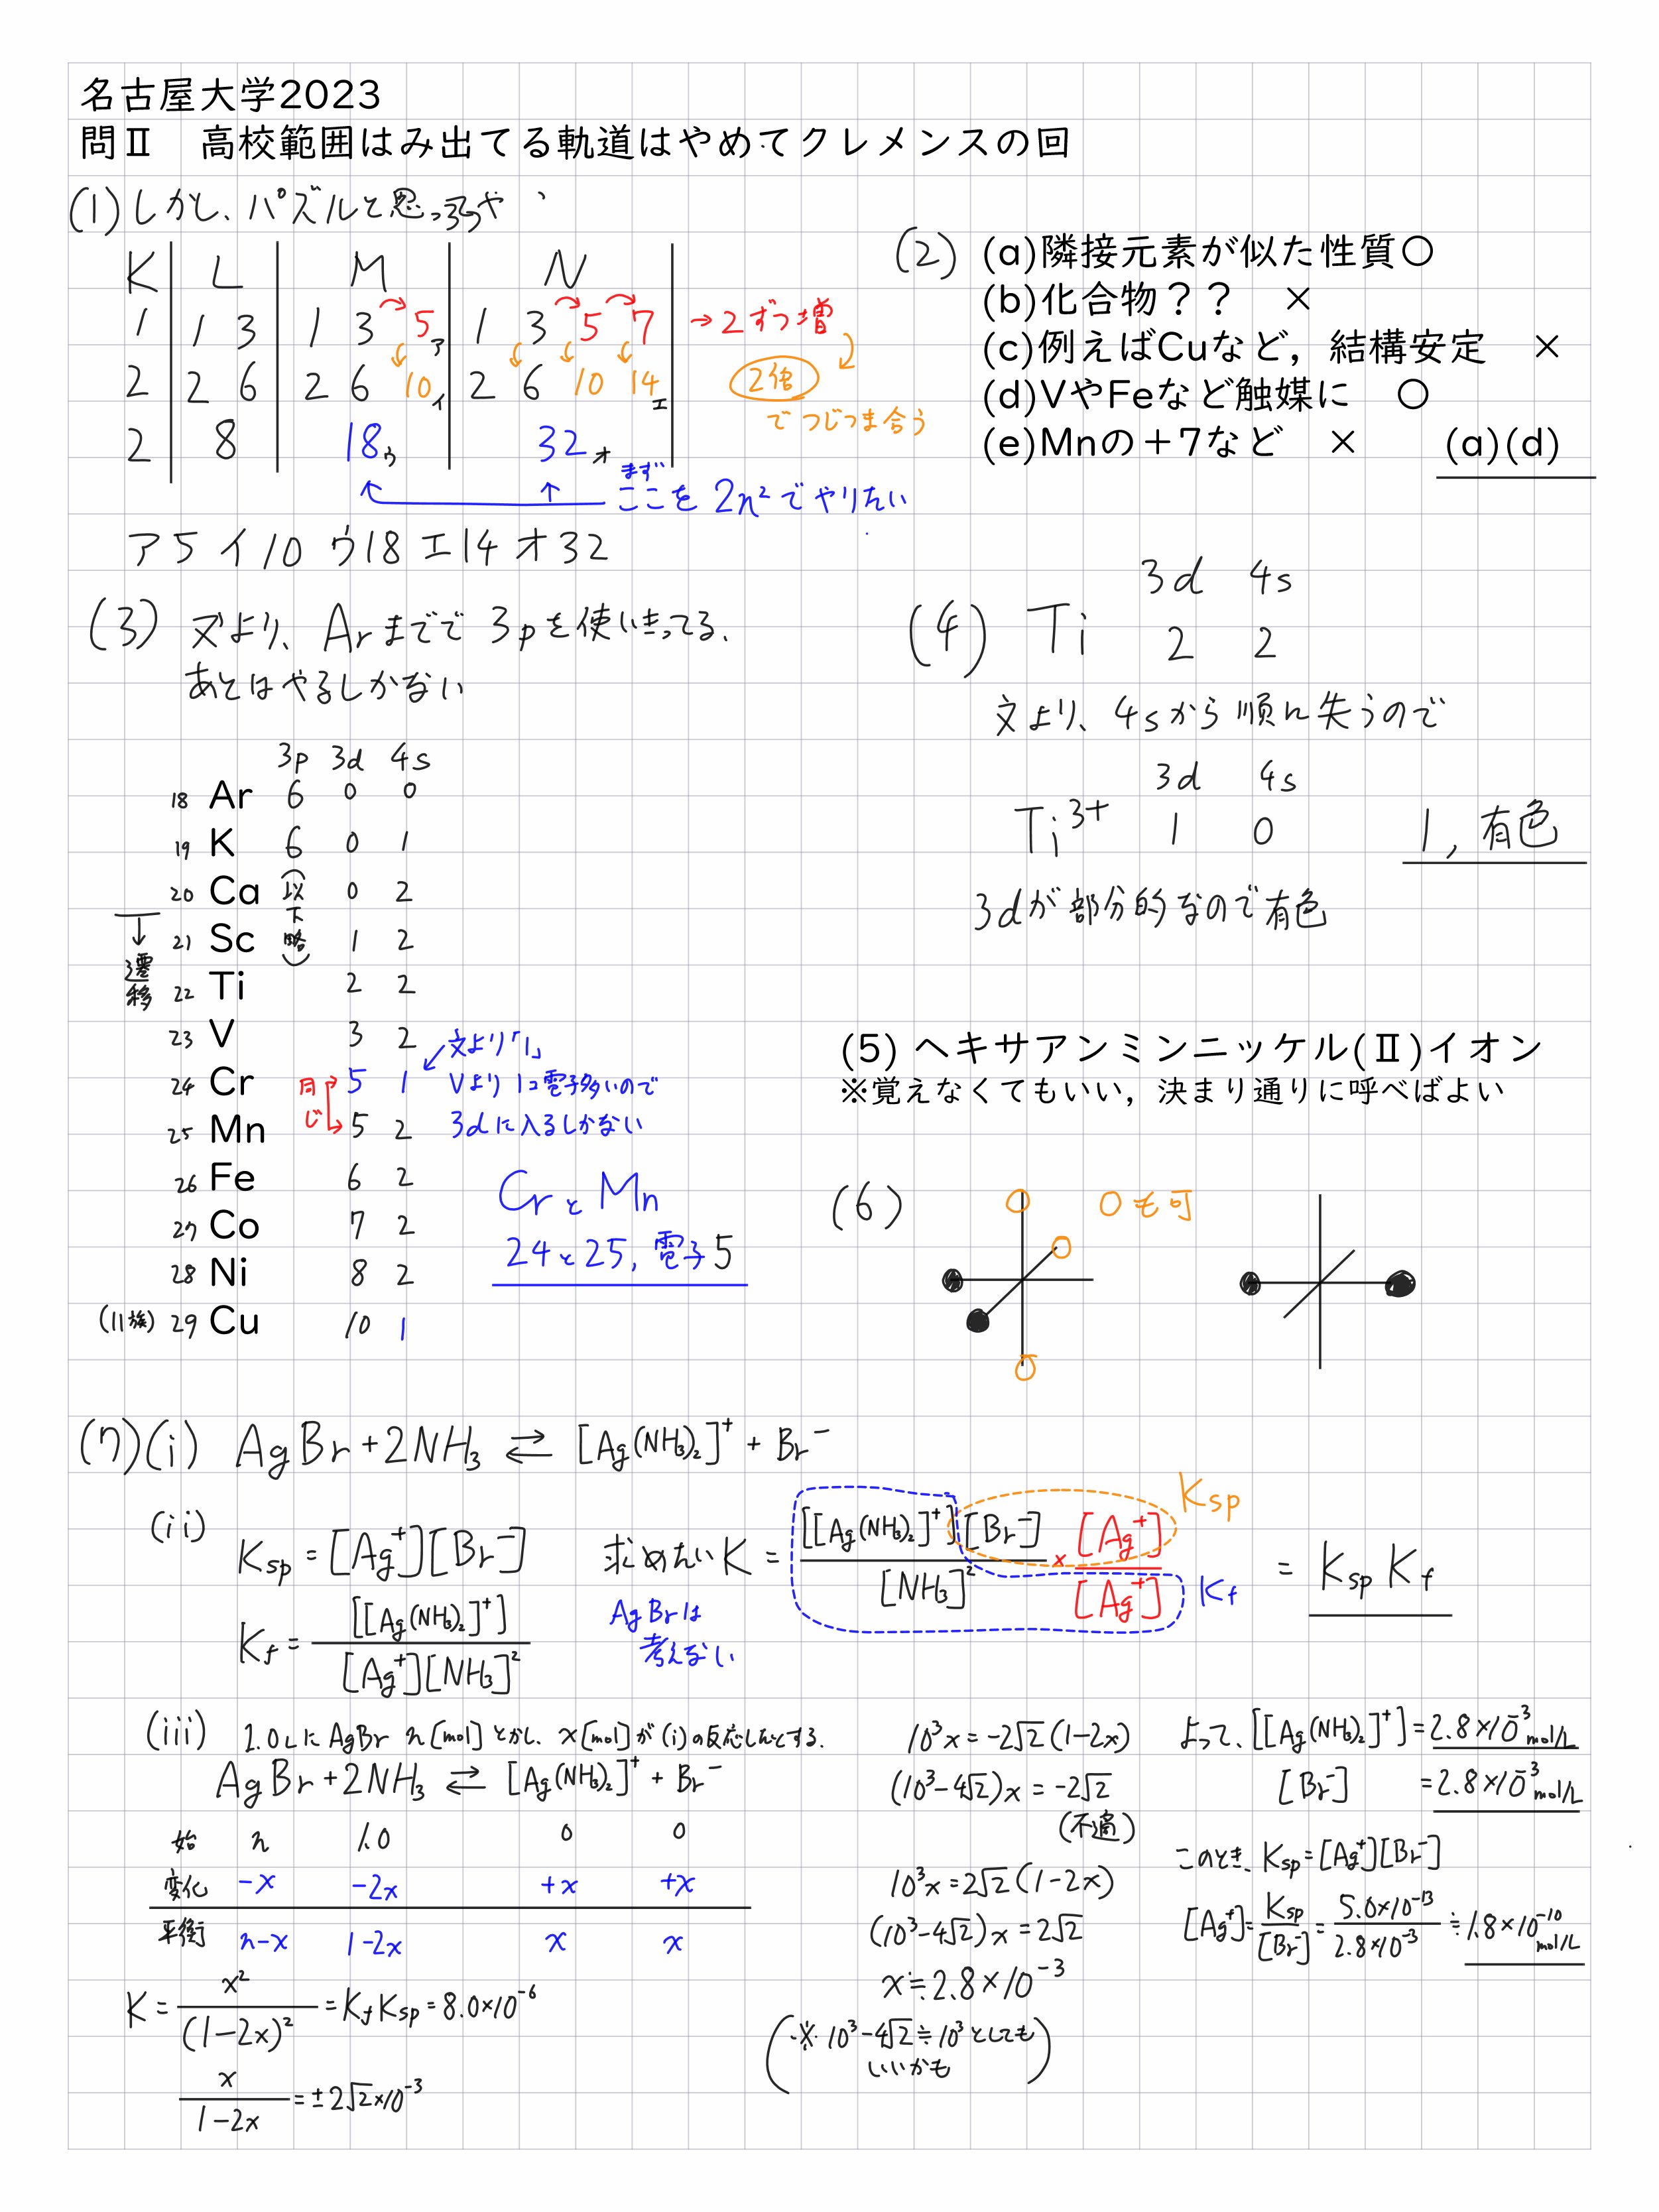 名古屋大学2023
問Ⅱ 高校範囲はみ出てる軌道はやめてクレメンスの回
(1)しかし、パズルと思っろや
K L M N
1 1 3 1 3 5ア 1 3 5 7 →2ずつ増
2 2 6 2 6 10イ 2 6 10 14エ 2倍
でつじつま合う
2 8 18ウ 32オ
まず
ここを 2n²でやりたい
ア5 イ10 ウ18 エ14 オ32
(2) (a)隣接元素が似た性質〇
(b)化合物？？ ×
(c)例えばCuなど，結構安定 ×
(d)VやFeなど触媒に 〇
(e)Mnの＋7など × (a)(d)
(3) 文より、Arまでで 3pを使いきってる.
あとはやるしかない
3p 3d 4s
18 Ar 6 0 0
19 K 6 0 1
20 Ca (以下略) 0 2
21 Sc 1 2
↓遷移
22 Ti 2 2
23 V 3 2
24 Cr 5 1
25 Mn 5 2
26 Fe 6 2
27 Co 7 2
28 Ni 8 2
(11族) 29 Cu 10 1
同じ
文より「1」
Vより1コ電子多いので
3dに入るしかない
CrとMn
24と25, 電子5
(4) Ti 3d 4s
2 2
文より、4sから順に失うので
3d 4s
Ti³⁺ 1 0 1, 有色
3dが部分的なので有色
(5) ヘキサアンミンニッケル(Ⅱ)イオン
※覚えなくてもいい，決まり通りに呼べばよい
(6) 〇も可
(7)(i) AgBr+2NH₃ ⇄ [Ag(NH₃)₂]⁺ + Br⁻
(ii) Ksp = [Ag⁺][Br⁻]
Kf = [[Ag(NH₃)₂]⁺] / [Ag⁺][NH₃]²
求めたいK = [[Ag(NH₃)₂]⁺][Br⁻] / [NH₃]² × [Ag⁺] / [Ag⁺] = Ksp Kf
Ksp
Kf
AgBrは
考えない
(iii) 1.0LにAgBr n[mol]とかし、x[mol]が(i)の反応したとする.
AgBr+2NH₃ ⇄ [Ag(NH₃)₂]⁺ + Br⁻
始 n 1.0 0 0
変化 -x -2x +x +x
平衡 n-x 1-2x x x
K = x² / (1-2x)² = Kf Ksp = 8.0×10⁻⁶
x / 1-2x = ±2√2×10⁻³
10³x = -2√2(1-2x)
(10³-4√2)x = -2√2
(不適)
10³x = 2√2(1-2x)
(10³-4√2)x = 2√2
x≒2.8×10⁻³
(※ 10³-4√2≒10³としても
いいかも)
よって、[[Ag(NH₃)₂]⁺] = 2.8×10⁻³ mol/L
[Br⁻] = 2.8×10⁻³ mol/L
このとき、Ksp = [Ag⁺][Br⁻]
[Ag⁺] = Ksp / [Br⁻] = 5.0×10⁻¹³ / 2.8×10⁻³ ≒ 1.8×10⁻¹⁰ mol/L